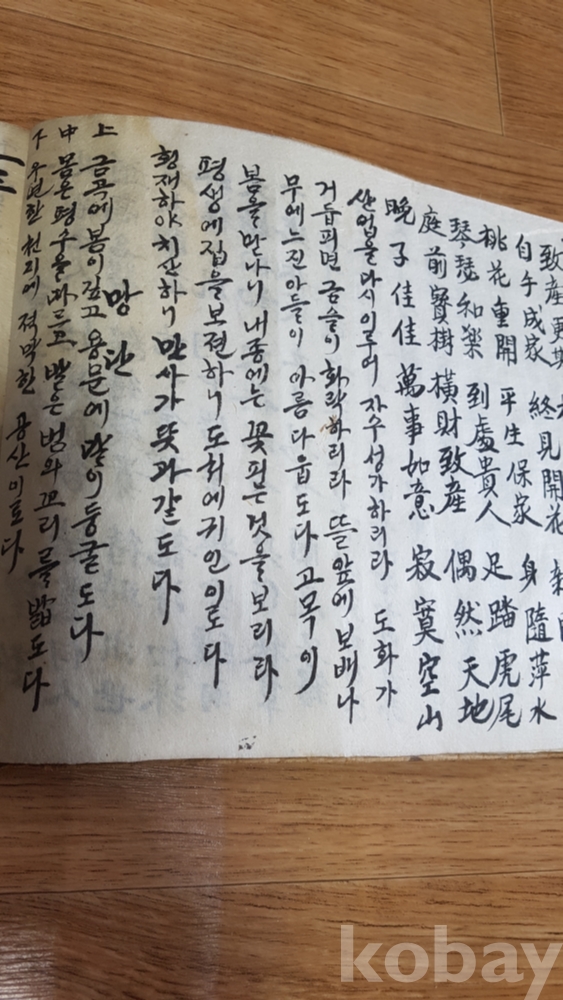 致産更其
自手成家 終見開花
桃花重開 平生保家 身隨萍水
琴瑟和樂 到處貴人 足踏虎尾
庭前寶樹 橫財致産 偶然天地
晩子佳佳 萬事如意 寂寞空山
산업을 다시 이루어 자수성가하리라 도화가
거듭피면 금슬이 화락하리라 뜰앞에 보배나
무에 느진 아들이 아름다웁도다 고목이
봄을 만나니 내종에는 꽃피는것을 보리라
평생에 집을 보젼하니 도처에 귀인이로다
횡재하야 치산하니 만사가 뜻과 같도다
망단
上 금곡에 봄이 깊고 용문에 달이 둥굴도다
中 몸은 평수을 따르고 발은 범의 꼬리를 밟도다
下 우연한 천지에 적막한 공산이로다
kobay